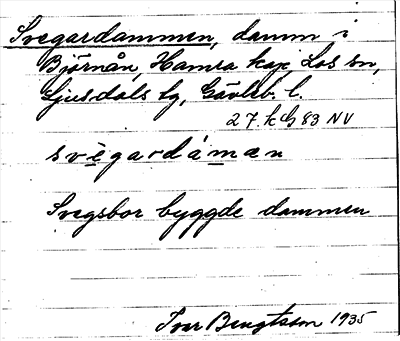 Svegardammen, damm i
Björnån, Hamra kap. Los sn,
Ljusdals tg, Gävleb. l.
27.k G 83 NV
svègardámæn
Svegsbor byggde dammen
Ivar Bengtsson 1935